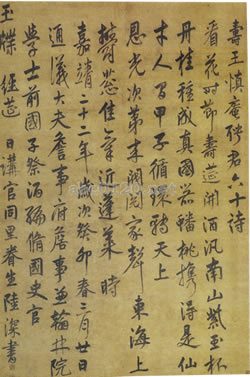 壽王慎庵聘君六十詩
看花時節壽筵開酒汎南山紫玉杯
丹桂種成真國器蟠桃攜得是仙
才人間甲子循環轉天上
恩光次第來閥閱家聲東海上
鬱葱佳氣近蓬萊 時
嘉靖二十二年歲次癸卯春三月廿日
通議大夫詹事府詹事兼翰林院
學士前國子祭酒編脩國史官
玉牒 經筵 日講官同里眷生陸深書